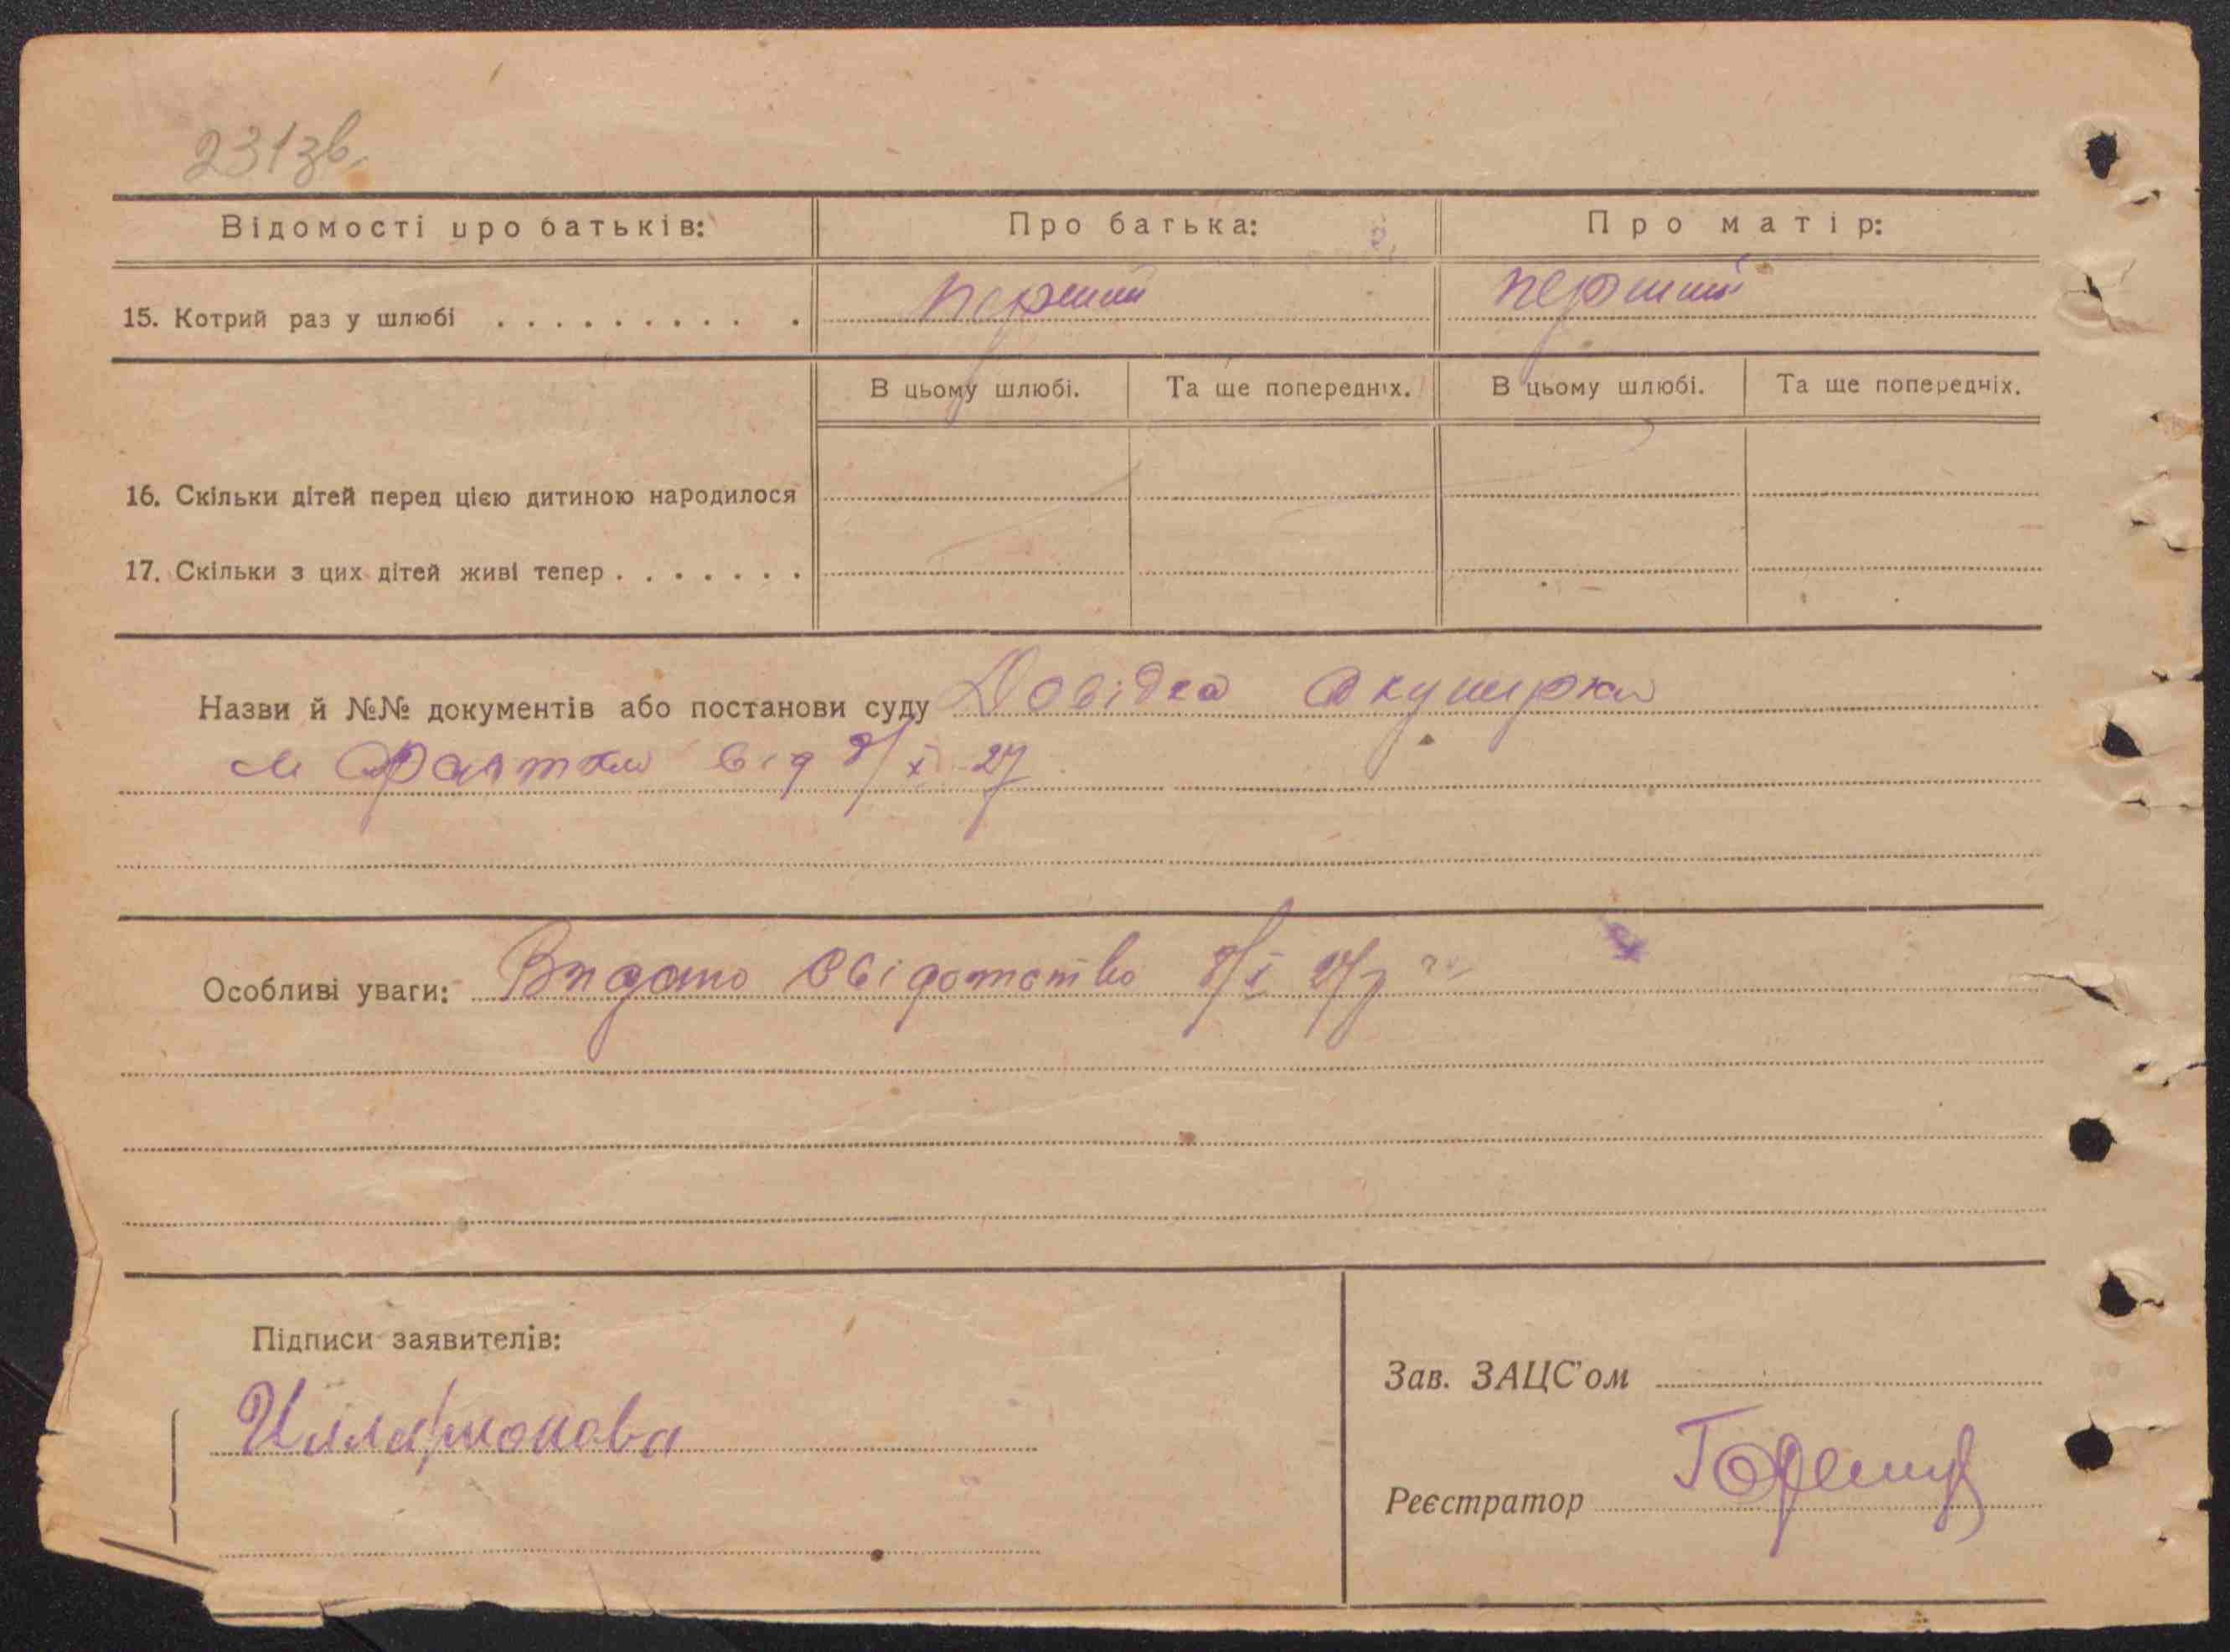 231зв.
Відомості про батьків: Про батька: Про матір:
15. Котрий раз у шлюбі . . . . . . . . . . . перший перший
В цьому шлюбі. Та ще попередніх. В цьому шлюбі. Та ще попередніх.
16. Скільки дітей перед цією дитиною народилося
17. Скільки з цих дітей живі тепер . . . . . . .
Назви й №№ документів або постанови суду Довідка акушерки
від 8/X 27
Особливі уваги: Видано свідотство 8/X 27 р
Підписи заявителів:
Зав. ЗАЦС'ом
Илларионова
Реєстратор